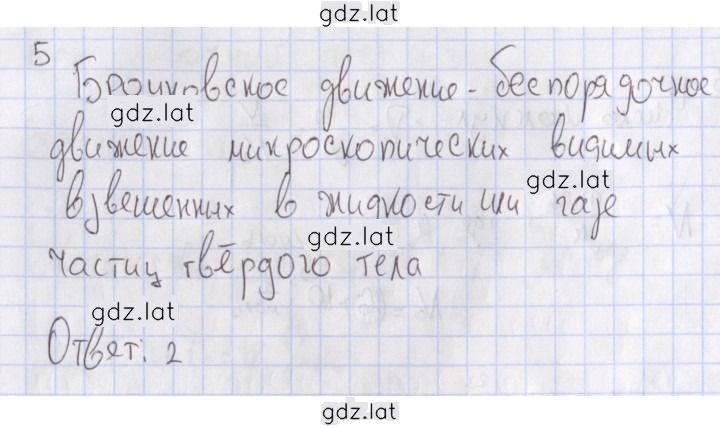 gdz.lat
5
Броуновское движение - беспорядочное
gdz.lat
движение микроскопических видимых
gdz.lat
взвешенных в жидкости или газе
gdz.lat
частиц твёрдого тела
gdz.lat
Ответ: 2
gdz.lat